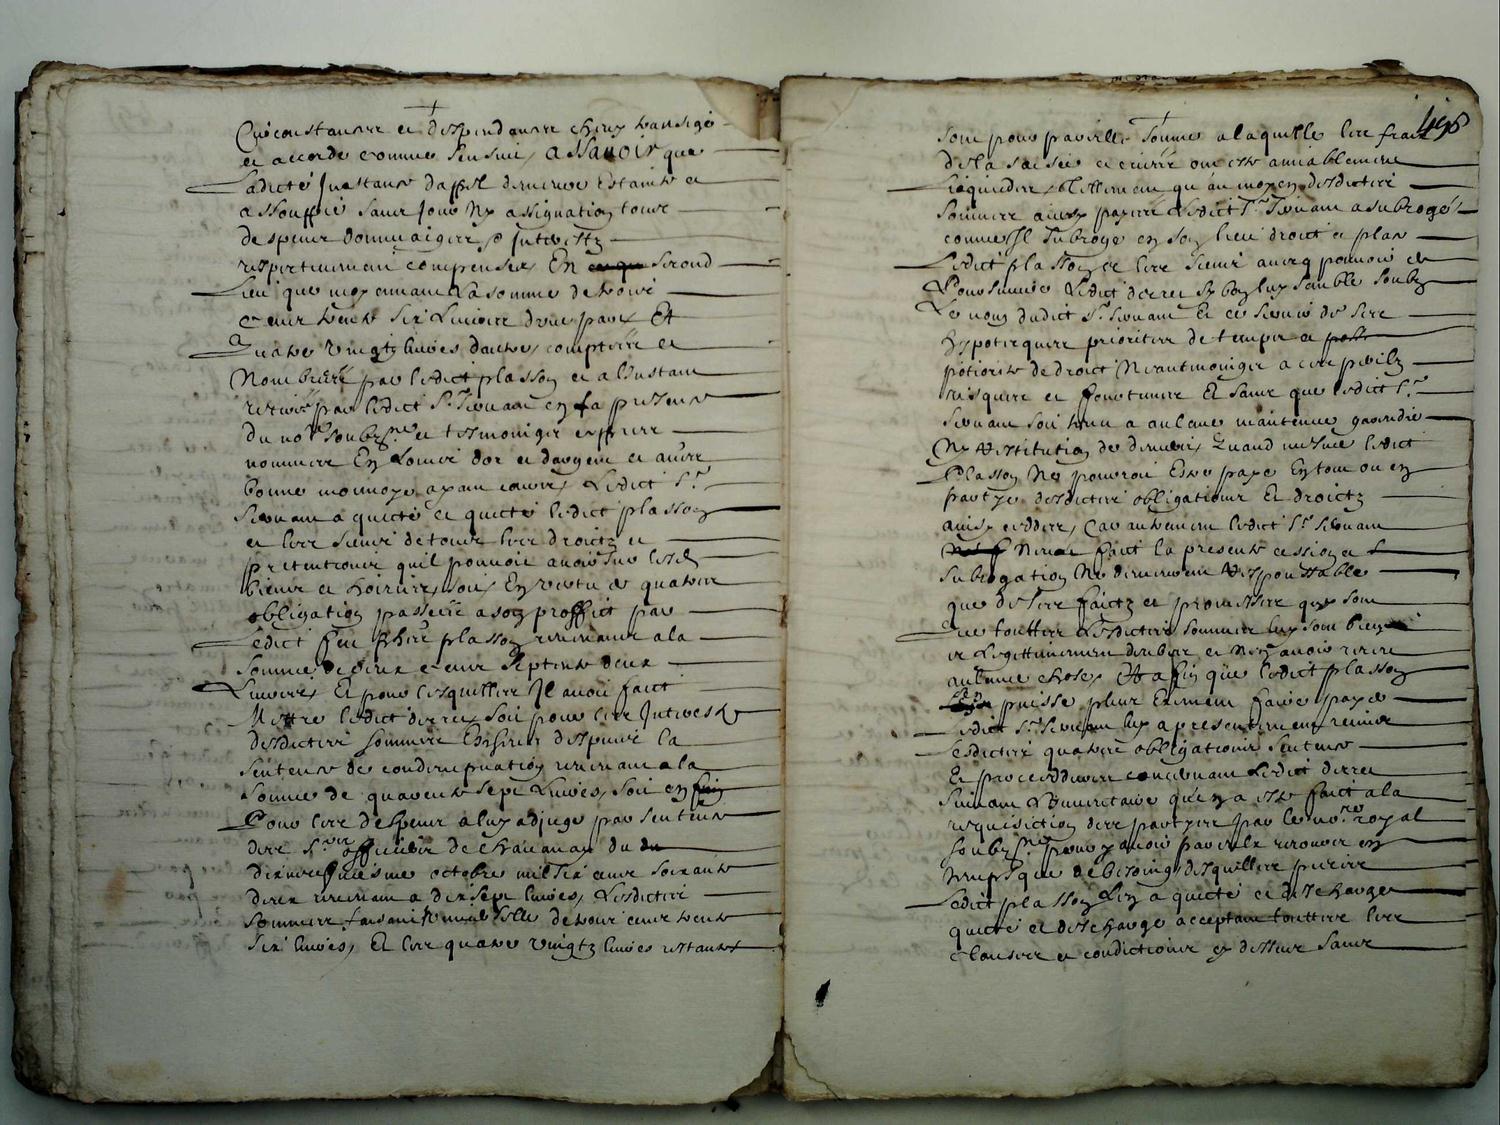 Circonstances et deppendances ches transigé
et accordé comme sensuit, assavoir que
Ladicte Instance dappel demeure estainte et
assouppie sans Jour Ny assignation tous
despens dommaiges et Interestz
respectivement compenses, En second
Lieu que moyennant La somme de trois
cens trente six Livres dune part Et
Quatre vingtz livres dautre, comptée et
Nombrée par ledict plasson et a lInstant
retiré par ledict Sr. en la presence
du nore. soubzne. et tesmoings expres
nommes En Louis dor et dargent et autre
bonne monnoye ayant cours, Ledict Sr.
a quicté et quicte ledict plasson
et les siens de tous les droictz et
pretentions quil pouvoit avoir sur lesd.
biens et hoiries, soit En vertu de quatre
obligations passées a son proffict par
Ledict feu plasson revenant a la
somme de deux cens septente deux
Livres, Et pour lesquelles Il avoit faict
Mettre ledict decret, soit pour les Interestz
desdictes sommes despuis la
sentence de condempnation revenant a la
somme de quarente sept Livres, soit en fin
Pour les despens a luy adjugé par sentence
des officiers de du
octobre mil six cens soixante
deux revenant a dix sept livres, Lesdictes
sommes faisant celle de trois cens trente
six livres, Et les quatre vingtz livres restantes
498
sont pour pareille somme a laquelle les fraix
de la saisie et criée ont esté amiablement
Liquidés, tellement qu'au moyen desdictes
sommes ainsy payées Ledict Sr. a subrogé
comme Il subroge en son lieu droict et place
Ledict plasson et les siens avecq pouvoir de
Poursuivre Ledict decret sy bon luy semble soubz
Le nom dudict Sr. Et ce servir de ses
hypoteques priorités de temps et
potiorité de droict Neantmoings a ses perilz
risques et fortunes Et sans que ledict Sr.
soit tenu a aulcune maintenue garendie
Ny restitution de deniers, Quand mesme ledict
Plasson Ne pourroit Estre payé En tout ou en
partye desdictes obligations Et droictz
ainsy ceddés, Car autrement ledict Sr.
Neust faict la presente cession et
subrogation Ne demeurant responssable
que de ses faictz et promesses que sont
Que touttes Lesdictes sommes luy sont bien
et Legittimement deubes et Nen avoir receu
aulcune chose, Et afin que ledict plasson
puisse plus Exement faire payé
Ledict Sr. luy a presentement remis
Lesdictes quatre obligations sentence
Et procedures concernant Ledict decret
suivant Linventaire qu'en a esté faict a la
requisition des partyes par le nore. royal
soubzne. pour y avoir par elle recours en
temps que de besoing, desquelles pieces
Ledict plasson Len a quicté et deschargé
quicte et descharge acceptant touttes les
clauses et condictions cy dessus sans